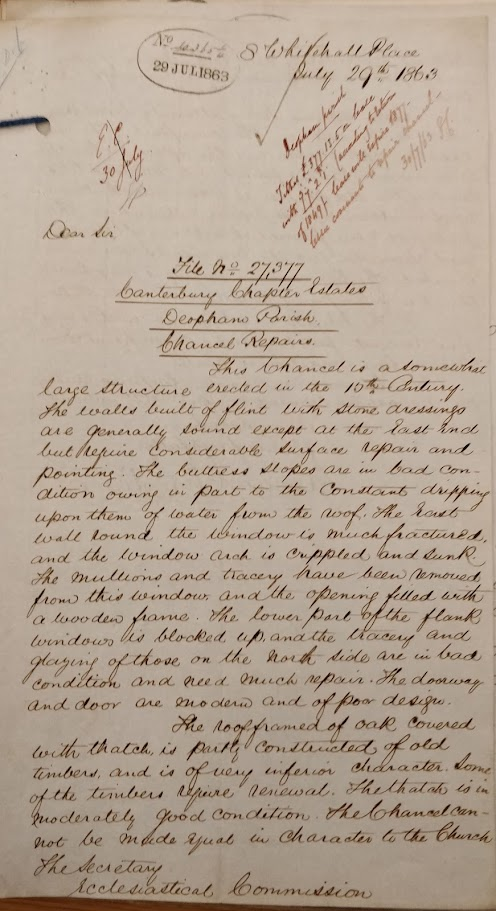 No
29 JUL 1863
8 Whitehall Place
July 29th 1863
E.C.
30 July
Deopham parish
Tithes £577.12.5 on lease
with 77.2.7
lease will expire 1877.
lessee covenants to repair chancel.
30/7/63
Dear Sir
File No 27,377
Canterbury Chapter Estates
Deopham Parish.
Chancel Repairs.
This Chancel is a somewhat
large structure erected in the 15th Century.
The walls built of flint with stone dressings
are generally sound except at the East End
but require considerable surface repair and
pointing. The buttress slopes are in bad con-
dition owing in part to the constant dripping
upon them of water from the roof. The East
wall round the window is much fractured,
and the window arch is crippled and sunk
The mullions and tracery have been removed
from this window and the opening filled with
a wooden frame. The lower part of the flank
windows is blocked up, and the tracery and
glazing of those on the North side are in bad
condition and need much repair. The doorway
and door are modern and of poor design.
The roof framed of oak covered
with thatch, is partly constructed of old
timbers, and is of very inferior character. Some
of the timbers require renewal. The thatch is in
moderately good condition. The Chancel can-
not be made equal in character to the Church
The Secretary
Ecclesiastical Commission